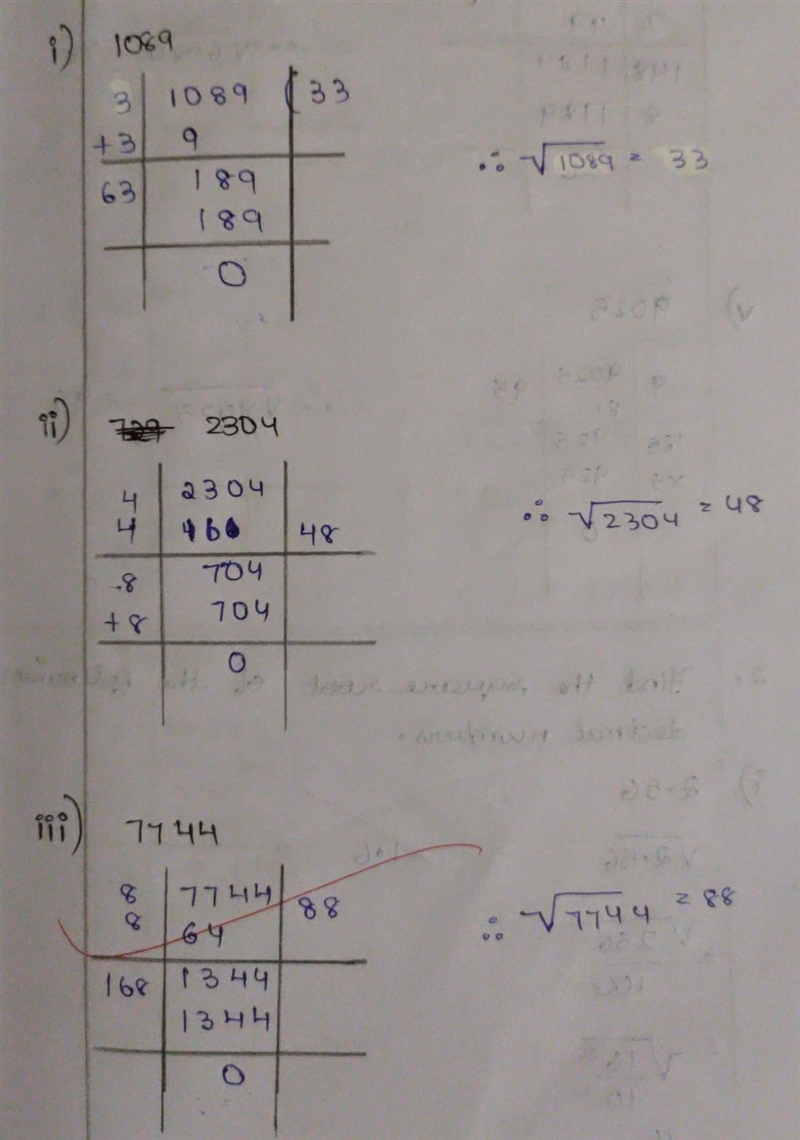 i) 1089
3 1089 ( 33
+3 9
∴ √1089 = 33
63 189
189
0
ii) 2304
4 2304
4 16 48
∴ √2304 = 48
8 704
+8 704
0
iii) 7744
8 7744 88
8 64
∴ √7744 = 88
168 1344
1344
0